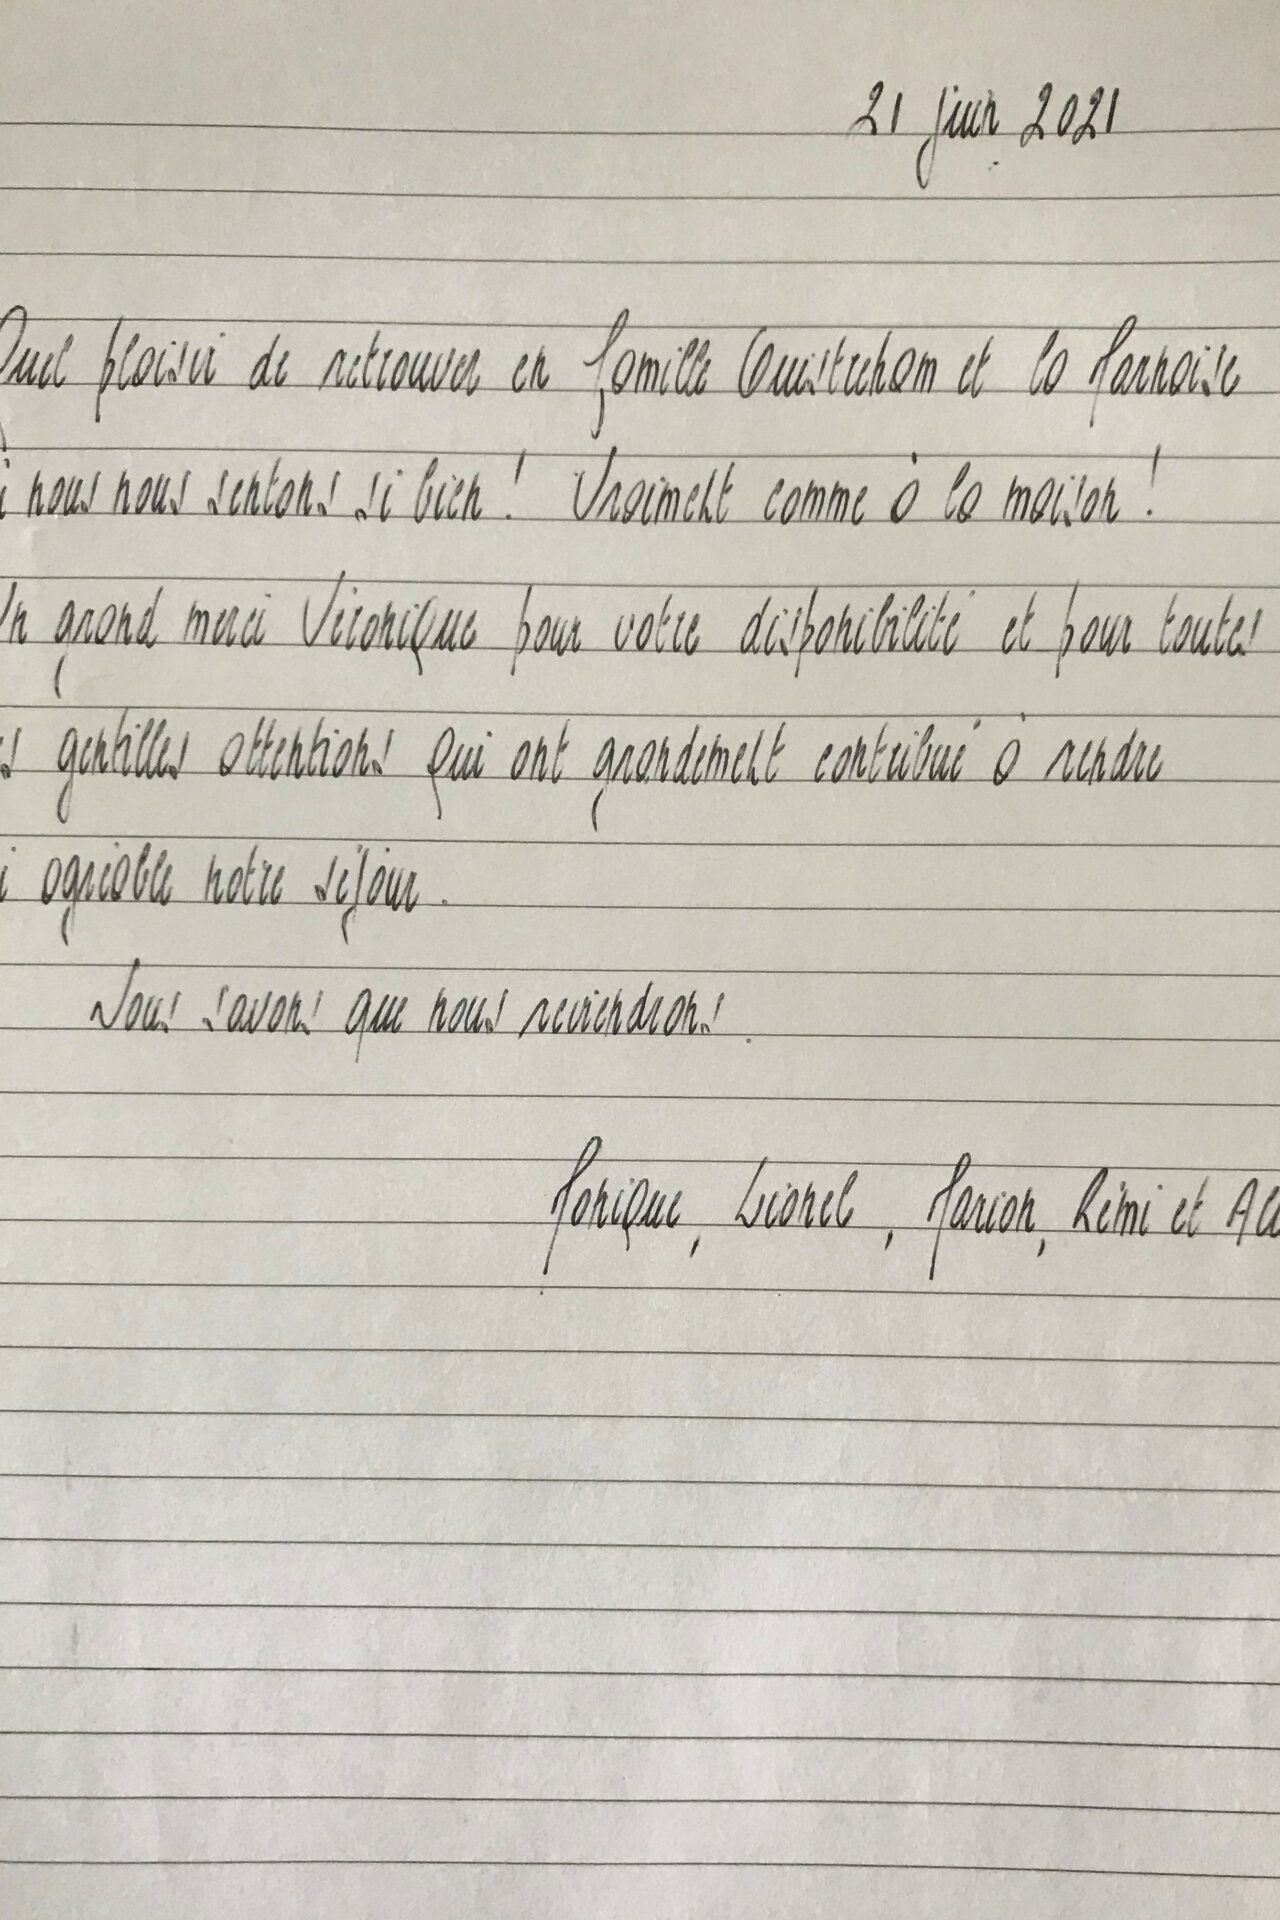 21 juin 2021
Quel plaisir de retrouver en famille Ouistreham et la Marnaise
i nous nous sentons si bien ! Vraiment comme à la maison !
Un grand merci Véronique pour votre disponibilité et pour toutes
s gentilles attentions qui ont grandement contribué à rendre
i agréable notre séjour.
Nous savons que nous reviendrons.
Monique, Lionel, Marion, Rémi et